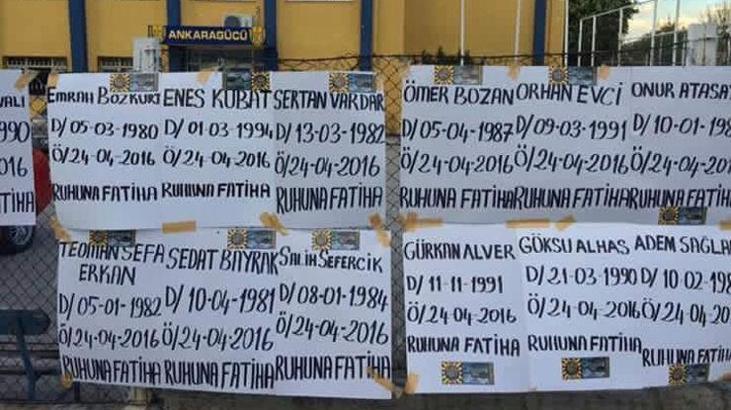 ANKARAGÜCÜ
VALI
1990
2016
FATİHA
EMRAH BOZKURT
D/05-03-1980
Ö/24-04-2016
RUHUNA FATİHA
ENES KUBAT
D/01-03-1994
Ö/24-04-2016
RUHUNA FATİHA
SERTAN VARDAR
D/13-03-1982
Ö/24-04-2016
RUHUNA FATİHA
ÖMER BOZAN
D/05-04-1987
Ö/24-04-2016
RUHUNA FATİHA
ORHAN EVCİ
D/09-03-1991
Ö/24-04-2016
RUHUNA FATİHA
ONUR ATASAY
D/10-01-198
Ö/24-04-2016
RUHUNA FATİHA
TEOMAN SEFA
ERKAN
D/05-01-1982
Ö/24-04-2016
RUHUNA FATİHA
SEDAT BAYRAK
D/10-04-1981
Ö/24-04-2016
RUHUNA FATİHA
SALİH SEFERCİK
D/08-01-1984
Ö/24-04-2016
RUHUNA FATİHA
GÜRKAN ALVER
D/11-11-1991
Ö/24-04-2016
RUHUNA FATİHA
GÖKSU ALHAS
D/21-03-1990
Ö/24-04-2016
RUHUNA FATİHA
ADEM SAĞLA
D/10-02-198
Ö/24-04-201
RUHUNA FATİHA